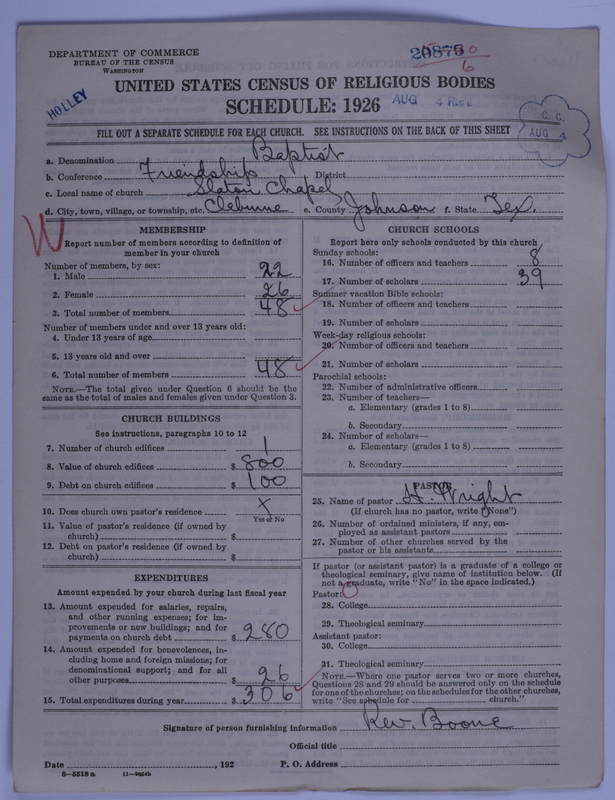 DEPARTMENT OF COMMERCE
BUREAU OF THE CENSUS
WASHINGTON
20876
6
UNITED STATES CENSUS OF RELIGIOUS BODIES
SCHEDULE: 1926
HOLLEY
AUG 4 Rec'd
C. C.
AUG 4
FILL OUT A SEPARATE SCHEDULE FOR EACH CHURCH. SEE INSTRUCTIONS ON THE BACK OF THIS SHEET
a. Denomination Baptist
b. Conference Friendship District
c. Local name of church Slaton Chapel
d. City, town, village, or township, etc. Cleburne e. County Johnson f. State Tex.
W
MEMBERSHIP
Report number of members according to definition of
member in your church
Number of members, by sex:
1. Male 22
2. Female 26
3. Total number of members 48
Number of members under and over 13 years old:
4. Under 13 years of age
5. 13 years old and over
6. Total number of members 48
NOTE.—The total given under Question 6 should be the
same as the total of males and females given under Question 3.
CHURCH BUILDINGS
See instructions, paragraphs 10 to 12
7. Number of church edifices 1
8. Value of church edifices $ 800
9. Debt on church edifices $ 100
10. Does church own pastor's residence x
Yes or No
11. Value of pastor's residence (if owned by
church) $
12. Debt on pastor's residence (if owned by
church) $
EXPENDITURES
Amount expended by your church during last fiscal year
13. Amount expended for salaries, repairs,
and other running expenses; for im-
provements or new buildings; and for
payments on church debt $ 280
14. Amount expended for benevolences, in-
cluding home and foreign missions; for
denominational support; and for all
other purposes $ 26
15. Total expenditures during year $ 306
CHURCH SCHOOLS
Report here only schools conducted by this church
Sunday schools:
16. Number of officers and teachers 8
17. Number of scholars 39
Summer vacation Bible schools:
18. Number of officers and teachers
19. Number of scholars
Week-day religious schools:
20. Number of officers and teachers
21. Number of scholars
Parochial schools:
22. Number of administrative officers
23. Number of teachers—
a. Elementary (grades 1 to 8)
b. Secondary
24. Number of scholars—
a. Elementary (grades 1 to 8)
b. Secondary
PASTOR
25. Name of pastor H. Wright
(If church has no pastor, write "None")
26. Number of ordained ministers, if any, em-
ployed as assistant pastors
27. Number of other churches served by the
pastor or his assistants
If pastor (or assistant pastor) is a graduate of a college or
theological seminary, give name of institution below. (If
not a graduate, write "No" in the space indicated.)
Pastor: O
28. College
29. Theological seminary
Assistant pastor:
30. College
31. Theological seminary
NOTE.—Where one pastor serves two or more churches,
Questions 28 and 29 should be answered only on the schedule
for one of the churches; on the schedules for the other churches,
write "See schedule for church."
Signature of person furnishing information Rev. Boone
Official title
Date , 192 P. O. Address
8—5518a 11—9054b